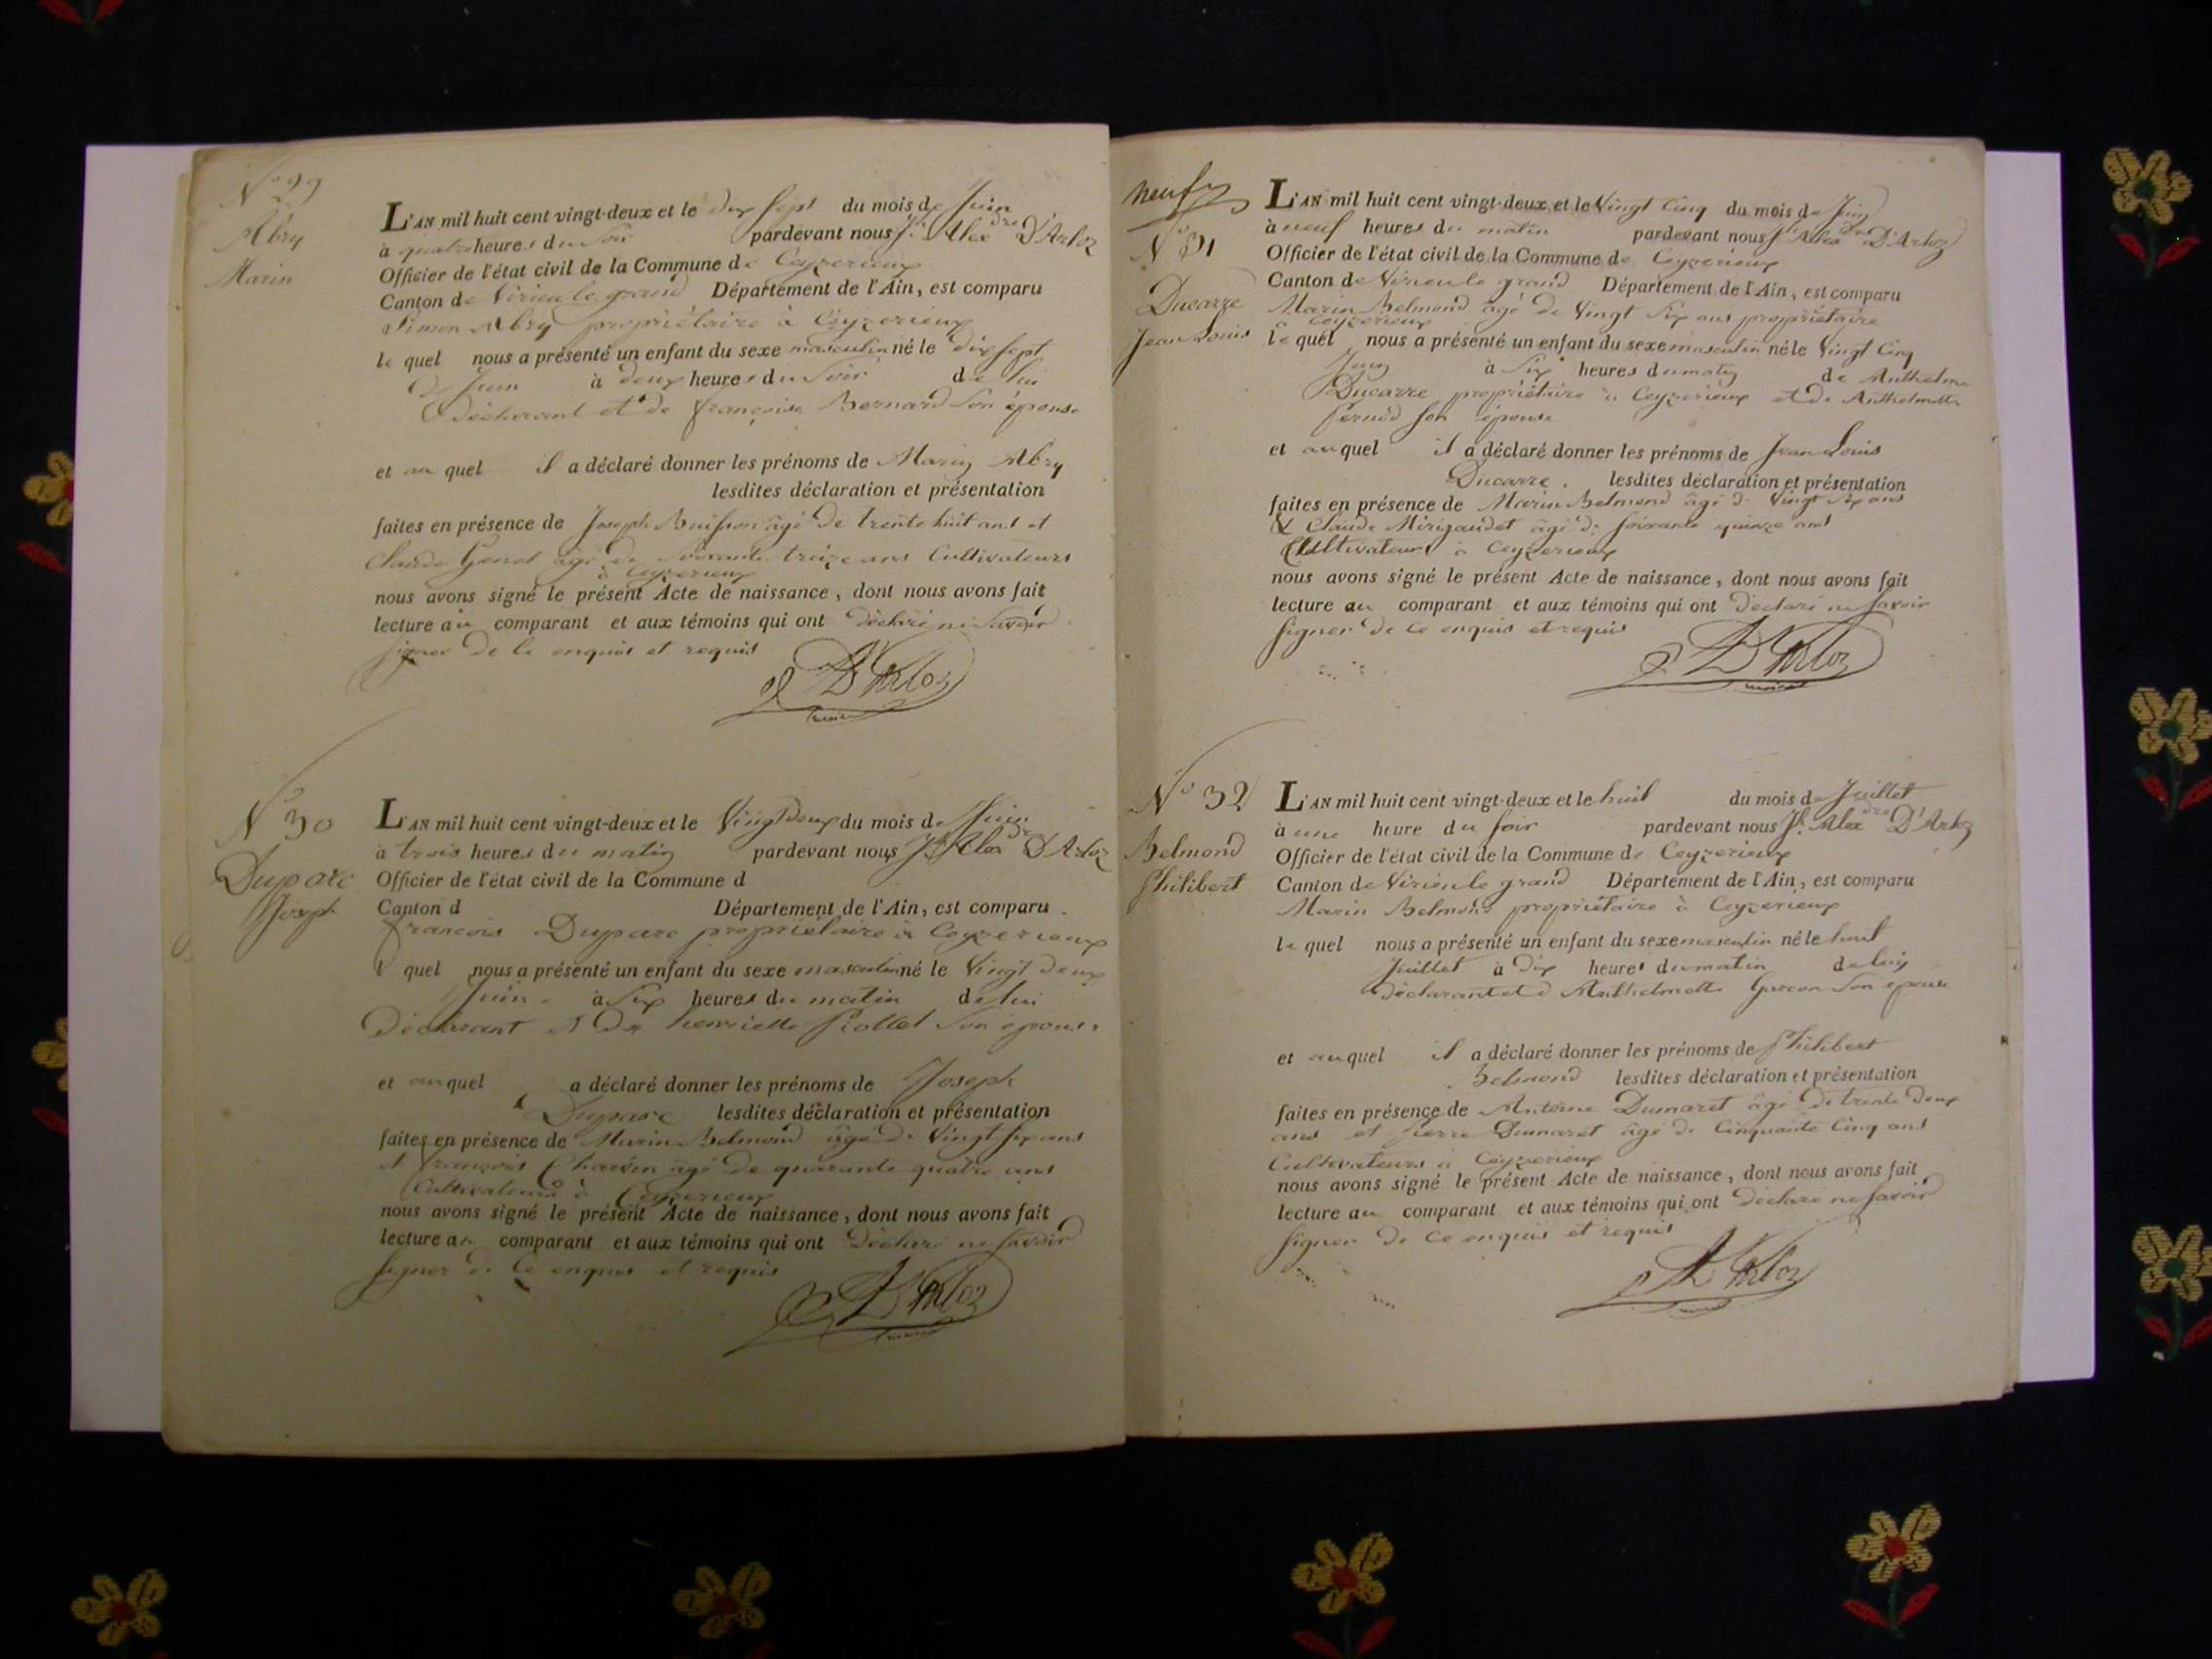 N° 29
Abry
Marin
L'AN mil huit cent vingt-deux et le dix sept du mois de Juin
à quatre heures du soir pardevant nous Jh Alexdre D'Arloz
Officier de l'état civil de la Commune de Ceyzerieux
Canton de Virieu le grand Département de l'Ain, est comparu
Simon Abry propriétaire à Ceyzerieux
le quel nous a présenté un enfant du sexe masculin né le dix sept
de Juin à deux heures du soir de lui
déclarant et de françoise Bernard son épouse
et au quel il a déclaré donner les prénoms de Marin Abry
lesdites déclaration et présentation
faites en présence de Joseph Buisson âgé de trente huit ans et
Claude Genet âgé de soixante treize ans Cultivateurs
à Ceyzerieux
nous avons signé le présent Acte de naissance, dont nous avons fait
lecture au comparant et aux témoins qui ont déclaré ne savoir
signer de ce enquis et requis
D'Arloz
N° 30
Duparc
Joseph
L'AN mil huit cent vingt-deux et le Vingt deux du mois de Juin
à trois heures du matin pardevant nous Jh Alexdre D'Arloz
Officier de l'état civil de la Commune d
Canton d Département de l'Ain, est comparu
francois Duparc propriétaire à Ceyzerieux
l quel nous a présenté un enfant du sexe masculin né le Vingt deux
Juin à Six heures du matin de lui
Déclarant et De henriette Piollet son épouse
et au quel a déclaré donner les prénoms de Joseph
Duparc lesdites déclaration et présentation
faites en présence de Marin Belmond âgé de Vingt six ans
et françois Charvin âgé de quarante quatre ans
Cultivateurs à Ceyzerieux
nous avons signé le présent Acte de naissance, dont nous avons fait
lecture au comparant et aux témoins qui ont déclaré ne savoir
signer de ce enquis et requis
D'Arloz
neuf
N° 31
Ducarre
Jean Louis
L'AN mil huit cent vingt-deux et le Vingt Cinq du mois de Juin
à neuf heures du matin pardevant nous Jh Alexdre D'Arloz
Officier de l'état civil de la Commune de Ceyzerieux
Canton de Virieu le grand Département de l'Ain, est comparu
Marin Belmond âgé de Vingt Six ans propriétaire
Ceyzerieux
le quel nous a présenté un enfant du sexe masculin né le Vingt Cinq
Juin à Six heures du matin de Anthelme
Ducarre propriétaire à Ceyzerieux et de Anthelmette
son épouse
et au quel il a déclaré donner les prénoms de Jean Louis
Ducarre. lesdites déclaration et présentation
faites en présence de Marin Belmond âgé de Vingt Six ans
& Claude Mirigaudet âgé de soixante quinze ans
Cultivateurs à Ceyzerieux
nous avons signé le présent Acte de naissance, dont nous avons fait
lecture au comparant et aux témoins qui ont déclaré ne savoir
signer de ce enquis et requis
D'Arloz
N° 32
Belmond
Philibert
L'AN mil huit cent vingt-deux et le huit du mois de Juillet
à une heure du soir pardevant nous Jh Alexdre D'Arloz
Officier de l'état civil de la Commune de Ceyzerieux
Canton de Virieu le grand Département de l'Ain, est comparu
Marin Belmond propriétaire à Ceyzerieux
le quel nous a présenté un enfant du sexe masculin né le huit
Juillet à dix heures du matin de lui
déclarant et d Anthelmette son épouse
et au quel il a déclaré donner les prénoms de Philibert
Belmond lesdites déclaration et présentation
faites en présence de Antoine Dumaret âgé de trente deux
ans et Pierre Dumaret âgé de Cinquante Cinq ans
Cultivateurs à Ceyzerieux
nous avons signé le présent Acte de naissance, dont nous avons fait
lecture au comparant et aux témoins qui ont déclaré ne savoir
signer de ce enquis et requis
D'Arloz